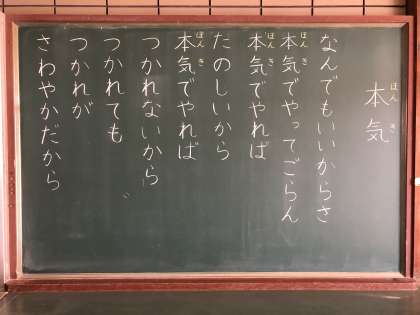 本気
なんでもいいからさ
本気でやってごらん
本気でやれば
たのしいから
本気でやれば
つかれないから
つかれても
つかれが
さわやかだから